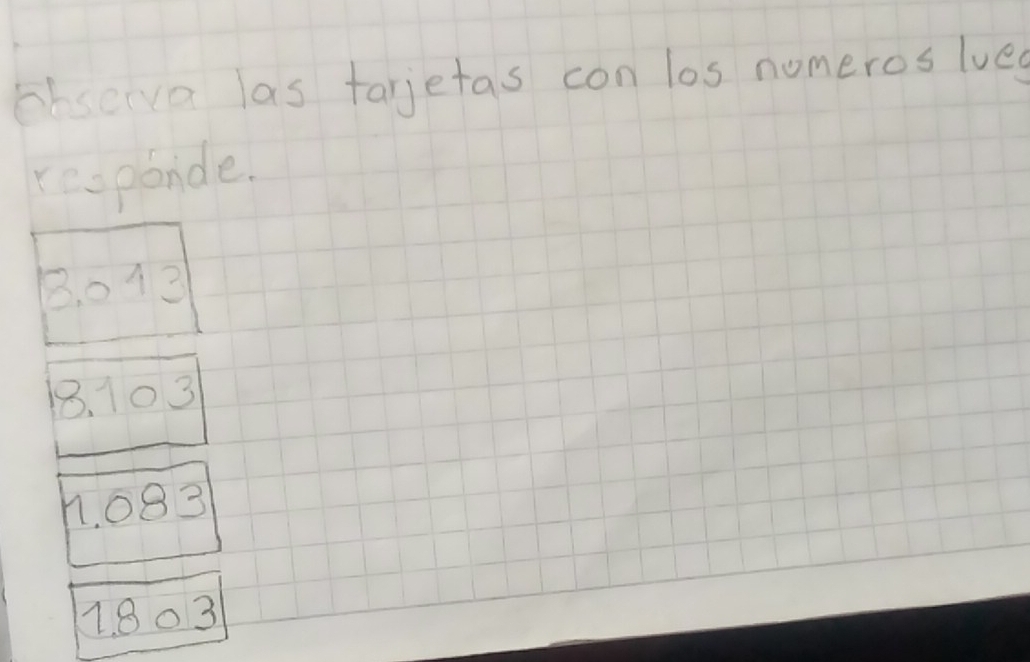 observa las tarjetas con los numeros lueg
respónde.
8.013
8.103
1.083
1.803